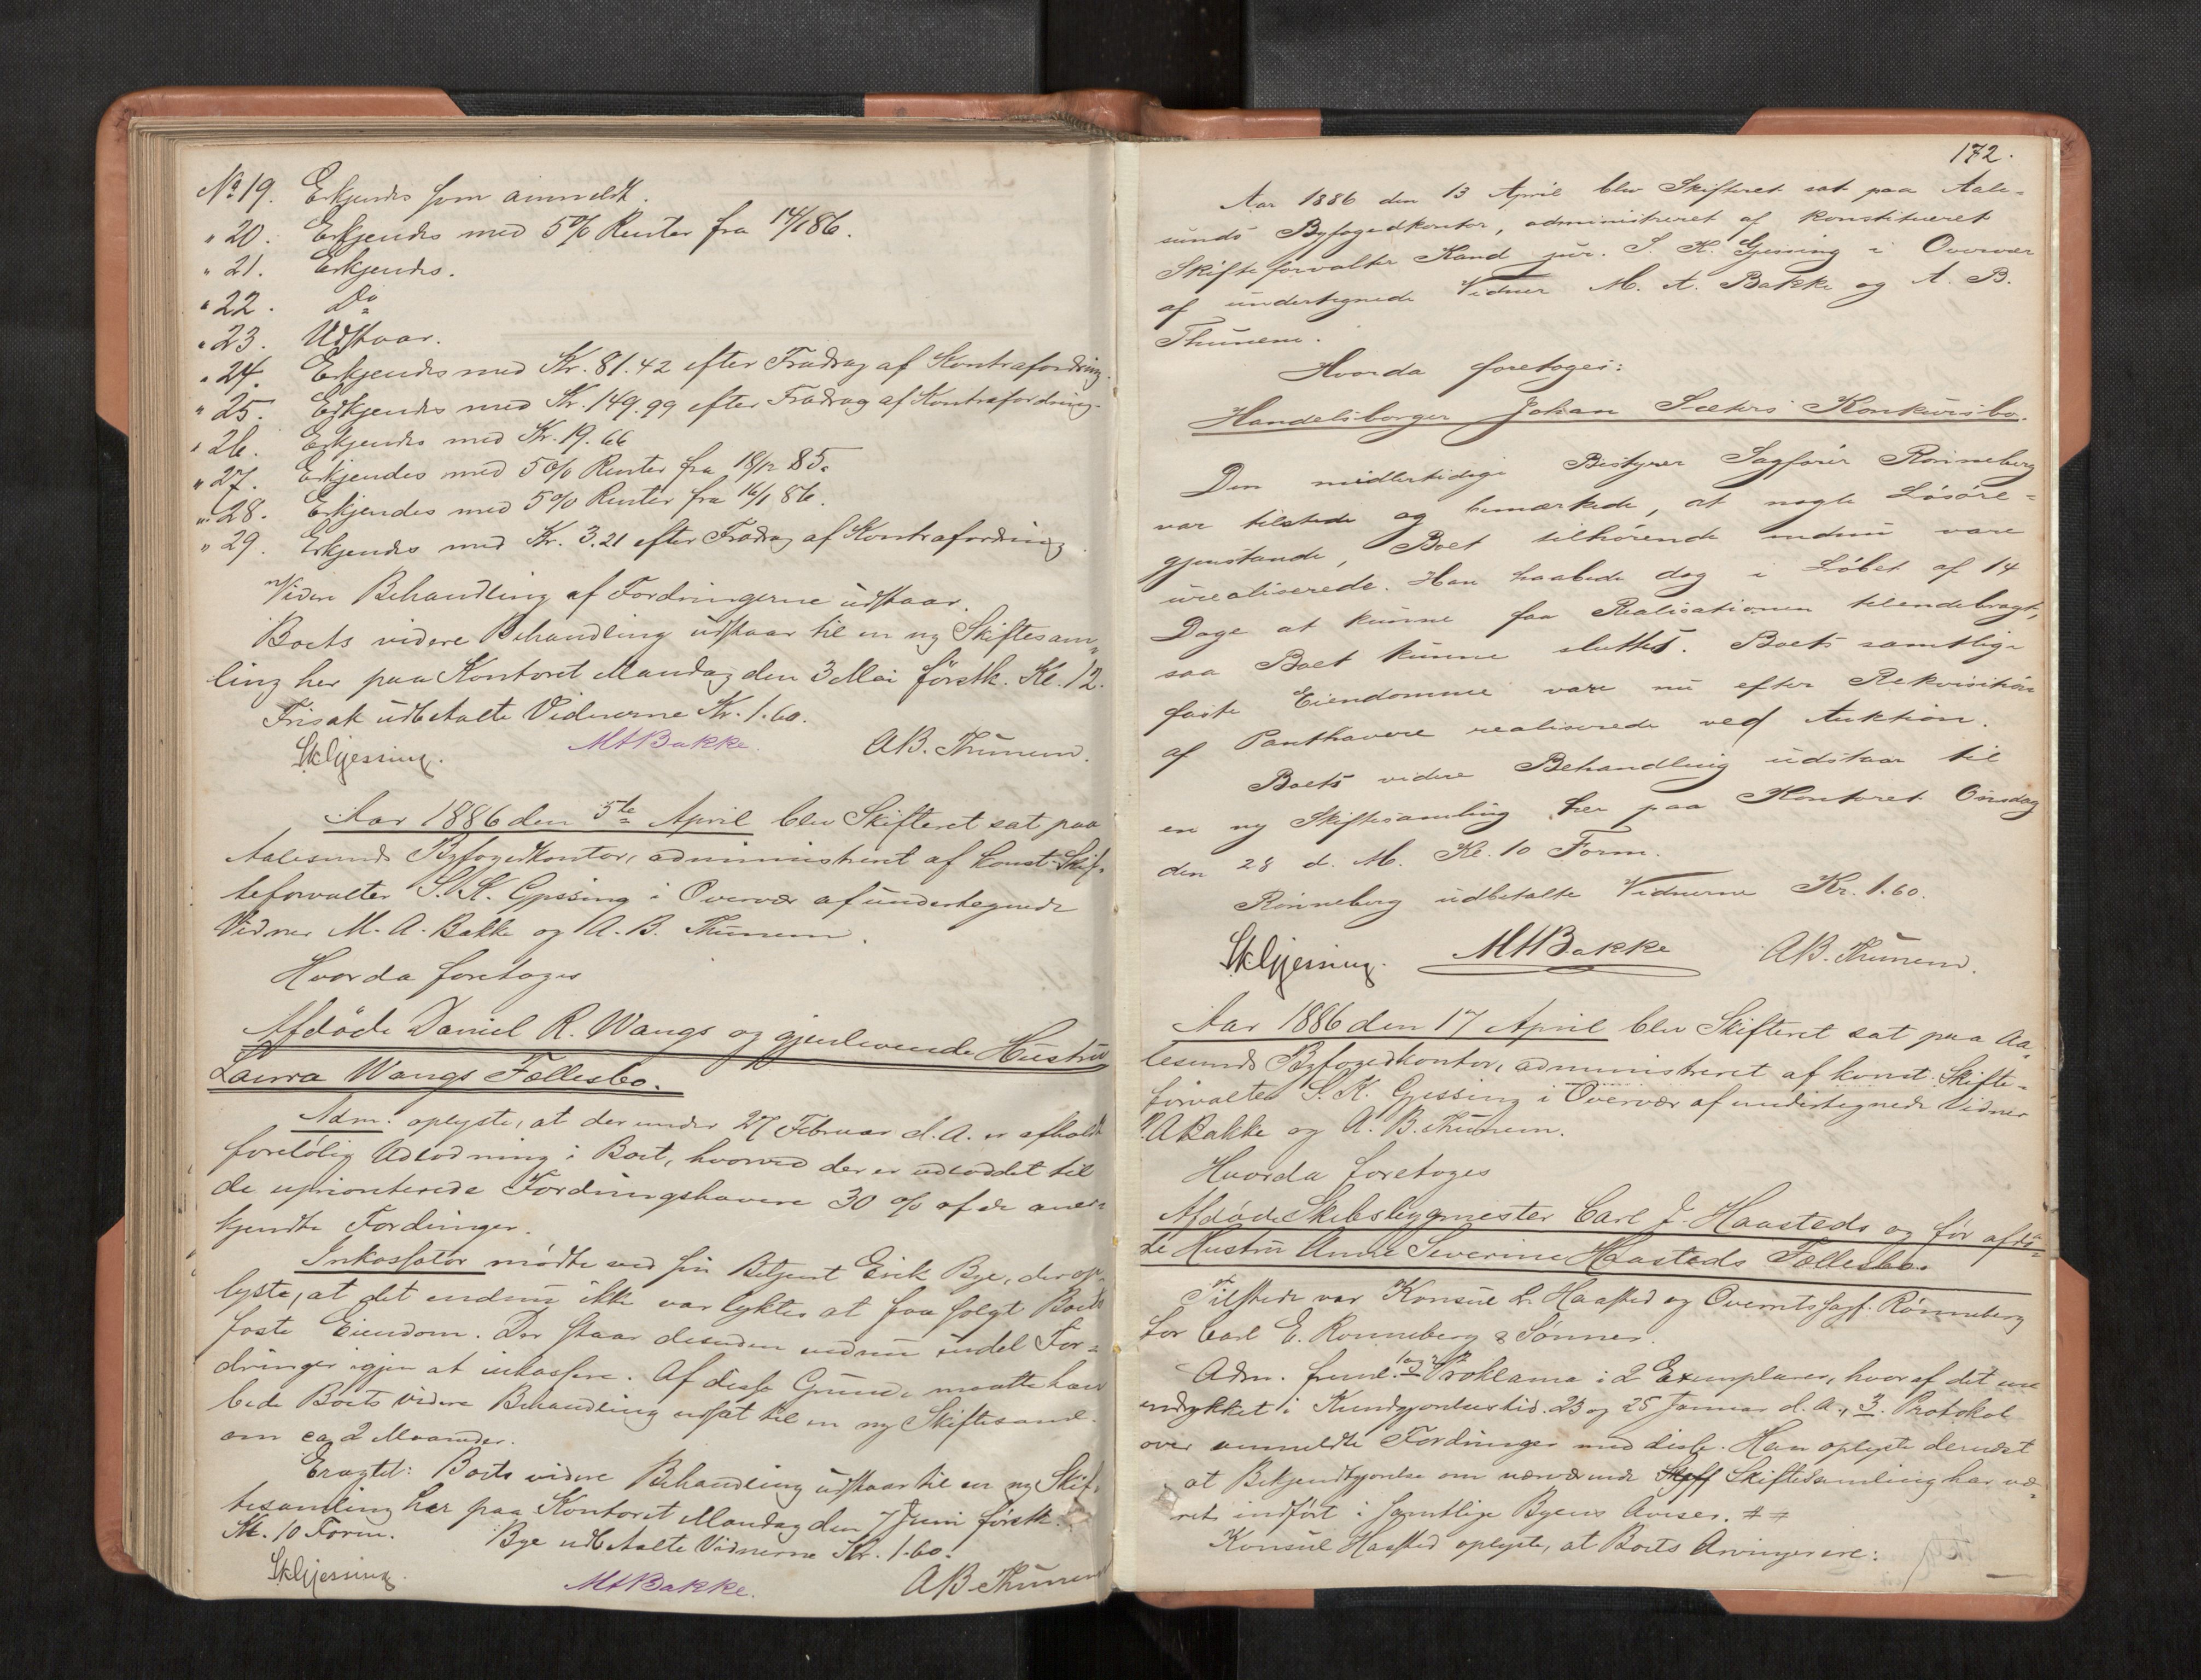 No 19. Erkjendes som anmeldt.
" 20. Erkjendes med 5% Renter fra 14/1 86.
" 21. Erkjendes.
" 22. Do
" 23. Udstaar.
" 24. Erkjendes med Kr. 81.42 efter Fradrag af Kontrafordring.
" 25. Erkjendes med Kr. 149.99 efter Fradrag af Kontrafordring.
" 26. Erkjendes med Kr. 19.66
" 27. Erkjendes med 5% Renter fra 18/12 85.
" 28. Erkjendes med 5% Renter fra 16/1 86.
" 29. Erkjendes med Kr. 3.21 efter Fradrag af Kontrafordring.
Videre Behandling af Fordringerne udstaar.
Boets videre Behandling udstaar til en ny Skiftesam„
ling her paa Kontoret Mandag den 3 Mai førstk. Kl. 12.
Frisak udbetalte Vidnerne Kr. 1.60.
SKGjessing. MABakke. AB. Thunem.
Aar 1886 den 5te April blev Skifteret sat paa
Aalesunds Byfogedkontor, administreret af konst. Skif-
teforvalter S. K. Gjessing i Overvær af undertegnede
Vidner M. A. Bakke og A. B. Thunem.
Hvorda foretoges
Afdøde Daniel R. Wangs og gjenlevende Hustru
Laura Wangs Fællesbo.
Adm. oplyste, at der under 27 Februar d. A. er afholdt
foreløbig Udlodning i Boet, hvorved der er udloddet til
de uprioriterede Fordringshavere 30 % af de aner-
kjendte Fordringer.
Inkassator mødte ved sin Betjent Erik Bye, der op-
lyste, at det endnu ikke var lyktes at faa solgt Boets
faste Eiendom. Der staar desuden endnu endel For-
dringer igjen at inkassere. Af disse Grunde maatte han
bede Boets videre Behandling udsat til en ny Skiftesaml.
om ca 2 Maaneder.
Eragtet: Boets videre Behandling udstaar til en ny Skif-
tesamling her paa Kontoret Mandag den 7 Juni førstk.
Kl. 10 Form. Bye udbetalte Vidnerne Kr. 1.60.
SKGjessing. MABakke. AB. Thunem
172.
Aar 1886 den 13 April blev Skifteret sat paa Aale-
sunds Byfogedkontor, administreret af konstitueret
Skifteforvalter Kand. jur. S. K. Gjessing i Overvær
af undertegnede Vidner M. A. Bakke og A. B.
Thunem.
Hvorda foretoges:
Handelsborger Johan Sæters Konkursbo.
Den midlertidige Bestyrer Sagfører Rønneberg
var tilstede og bemærkede, at nogle Løsøre-
gjenstande, Boet tilhørende endnu vare
urealiserede. Han haabede dog i Løbet af 14
Dage at kunne faa Realisationen tilendebragt,
saa Boet kunne sluttes. Boets samtlige
faste Eiendomme vare nu efter Rekvisition
af Panthavere realiserede ved Auktion.
Boets videre Behandling udstaar til
en ny Skiftesamling her paa Kontoret Onsdag
den 28 d. M. Kl. 10 Form.
Rønneberg udbetalte Vidnerne Kr. 1.60.
SKGjessing. MABakke AB. Thunem.
Aar 1886 den 17 April blev Skifteret sat paa Aa„
lesunds Byfogedkontor, administreret af konst. Skifte-
forvalter S. K. Gjessing i Overvær af undertegnede Vidner
M. A Bakke og A. B. Thunem.
Hvorda foretoges
Afdøde Skibsbygmester Carl J. Haasteds og før afdø-
de Hustru Anne Severine Haasteds Fællesbo.
Tilstede var Konsul L. Haasted og Overretssagf. Rønneberg
for Carl E. Rønneberg & Sønner.
Adm. freml. 1 og 2 Proklama i 2 Exemplarer, hvoraf det ene
indrykket i Kundgjørelsestid. 23 og 25 Januar d. A., 3. Protokol
over anmeldte Fordringer med disse. Han oplyste dernæst
at Bekjendtgjørelse om nærværende Skiftesamling har væ-
ret indført i samtlige Byens Aviser. ++
Konsul Haasted oplyste, at Boets Arvinger ere: